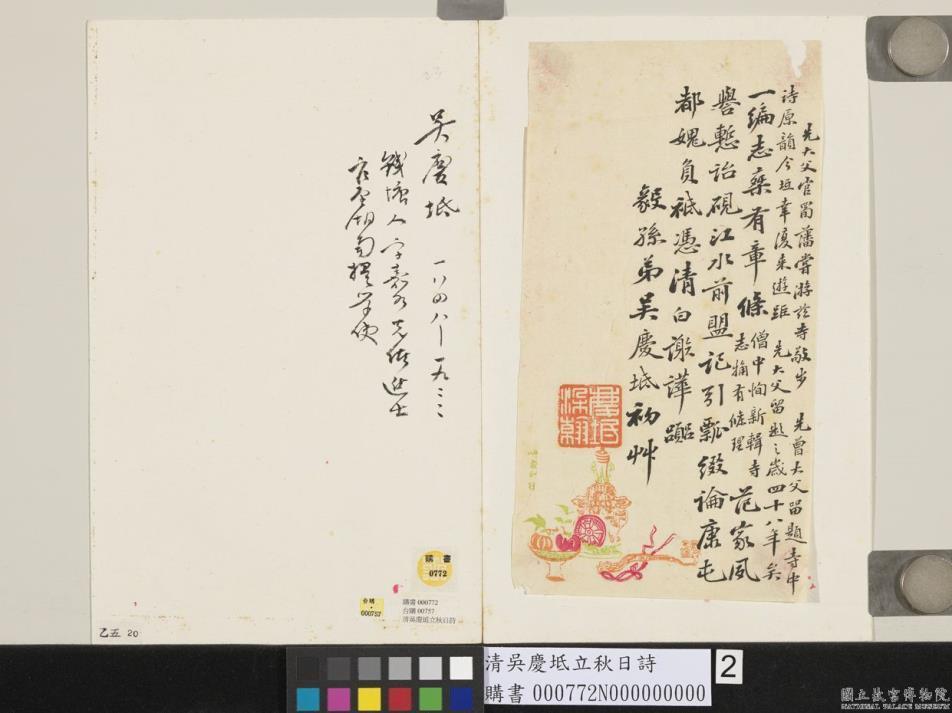 先大父官蜀藩嘗游於寺敬步 先曾大父留題寺中
詩原韻今垣幸復來遊距 先大父留題之歲四十八年矣
一編志乘有章條 僧中恂新輯寺
志稿有條理 范家風
譽慙詒硯江水前盟記引瓢綴論康屯
都媿負祗憑清白謝譁囂
毅孫弟吳慶坻初艸
慶坻
染翰
吳慶坻 一八四八-一九三三
錢塘人 字 光緒進士
官至湖南提學使
購書
0772
台購
000757
購書 000772
台購 00757
清吳慶坻立秋日詩
乙五 20
清吳慶坻立秋日詩
購書 000772N000000000
2
國立故宮博物院
NATIONAL PALACE MUSEUM